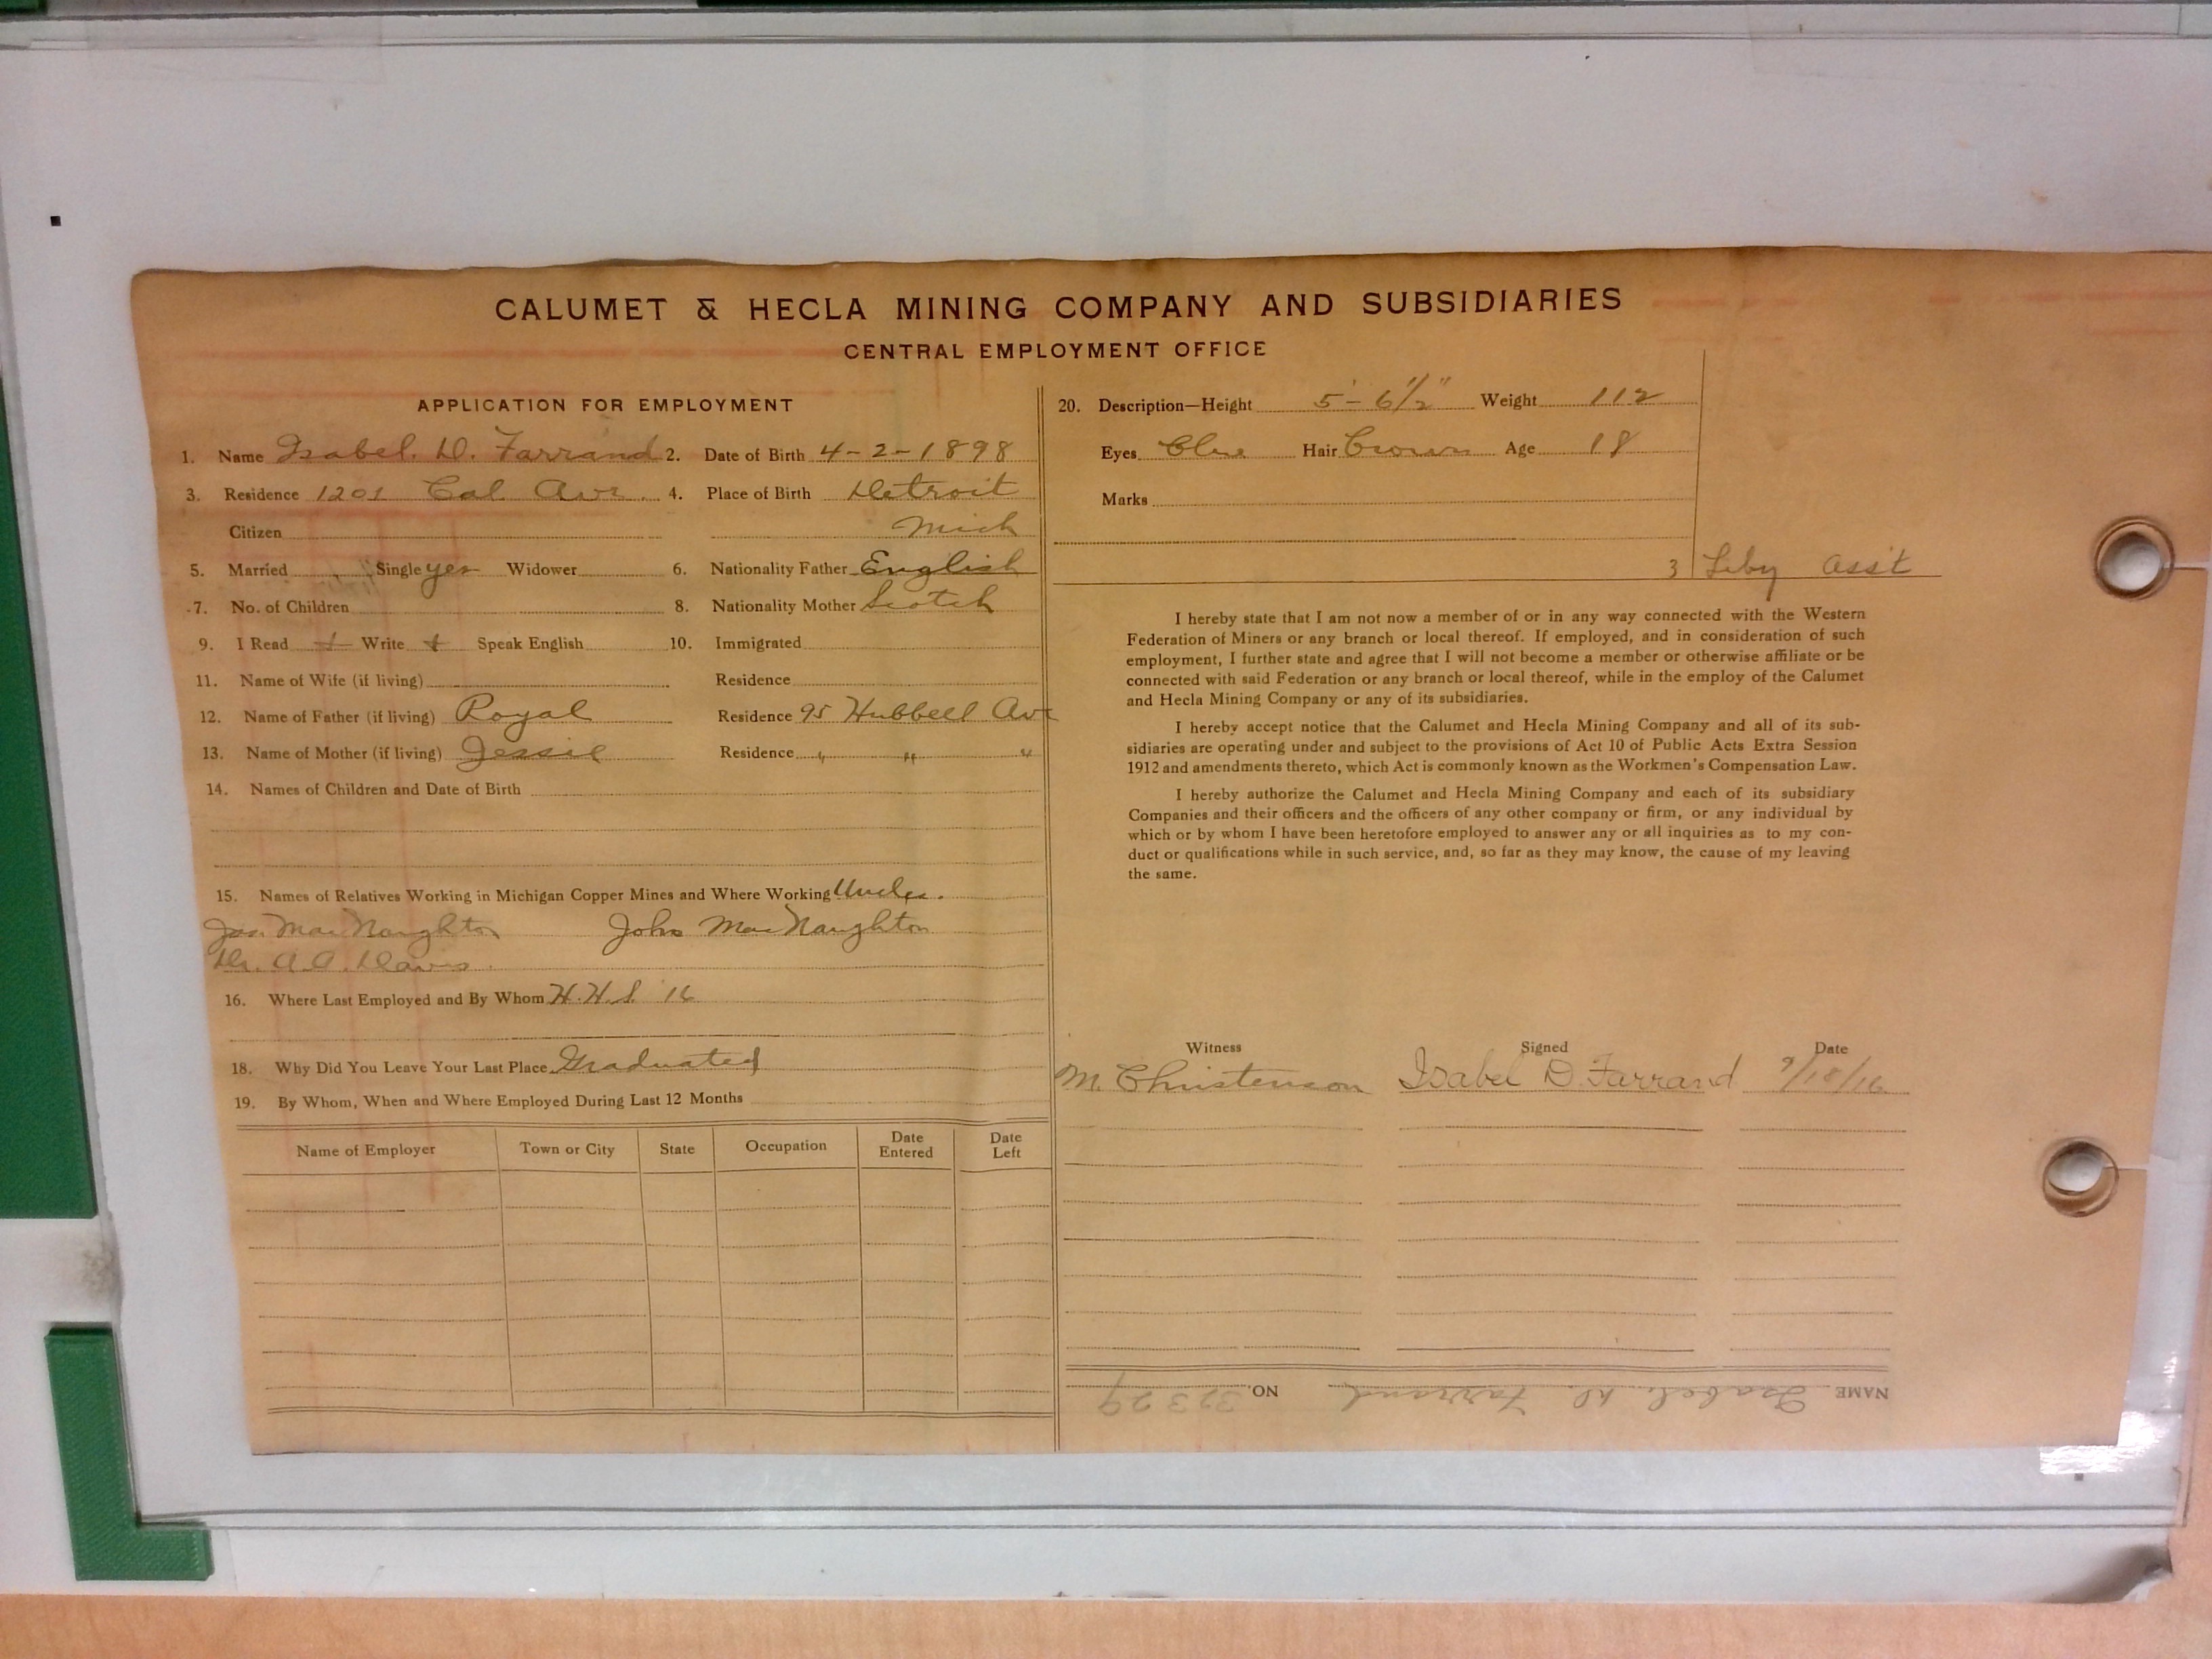 CALUMET & HECLA MINING COMPANY AND SUBSIDIARIES
CENTRAL EMPLOYMENT OFFICE
APPLICATION FOR EMPLOYMENT
1. Name Isabel. D. Farrand 2. Date of Birth 4-2-1898
3. Residence 1201 Cal. Ave. 4. Place of Birth Detroit
Citizen Mich
5. Married Single yes Widower 6. Nationality Father English
7. No. of Children 8. Nationality Mother Scotch
9. I Read + Write + Speak English 10. Immigrated
11. Name of Wife (if living) Residence
12. Name of Father (if living) Royal Residence 95 Hubbell Ave
13. Name of Mother (if living) Jessie Residence " " "
14. Names of Children and Date of Birth
15. Names of Relatives Working in Michigan Copper Mines and Where Working Uncles.
Jas. MacNaughton John MacNaughton
Dr. A. D. Davis.
16. Where Last Employed and By Whom H.H.S. '16
18. Why Did You Leave Your Last Place Graduated
19. By Whom, When and Where Employed During Last 12 Months
Name of Employer Town or City State Occupation Date Entered Date Left
20. Description—Height 5'-6 1/2" Weight 112
Eyes Blue Hair Brown Age 18
Marks
3 Liby Ass't
I hereby state that I am not now a member of or in any way connected with the Western
Federation of Miners or any branch or local thereof. If employed, and in consideration of such
employment, I further state and agree that I will not become a member or otherwise affiliate or be
connected with said Federation or any branch or local thereof, while in the employ of the Calumet
and Hecla Mining Company or any of its subsidiaries.
I hereby accept notice that the Calumet and Hecla Mining Company and all of its sub-
sidiaries are operating under and subject to the provisions of Act 10 of Public Acts Extra Session
1912 and amendments thereto, which Act is commonly known as the Workmen's Compensation Law.
I hereby authorize the Calumet and Hecla Mining Company and each of its subsidiary
Companies and their officers and the officers of any other company or firm, or any individual by
which or by whom I have been heretofore employed to answer any or all inquiries as to my con-
duct or qualifications while in such service, and, so far as they may know, the cause of my leaving
the same.
Witness Signed Date
M. Christenson Isabel D. Farrand 9/18/16
NAME Isabel. D. Farrand NO. 32329